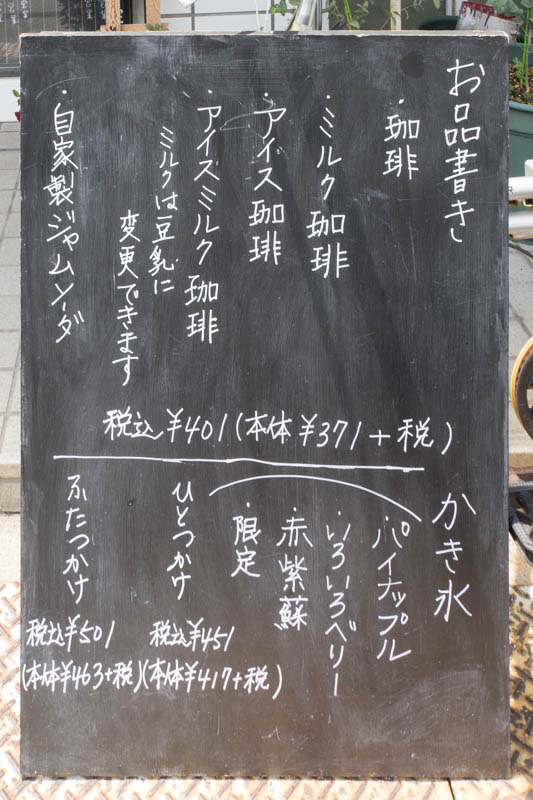 お品書き
・珈琲
・ミルク珈琲
・アイス珈琲
・アイスミルク珈琲
ミルクは豆乳に
変更できます
・自家製ジャムソーダ
税込¥401(本体¥371+税)
かき氷
・パイナップル
・いろいろベリー
・赤紫蘇
・限定
ひとつかけ
税込¥451
(本体¥417+税)
ふたつかけ
税込¥501
(本体¥463+税)